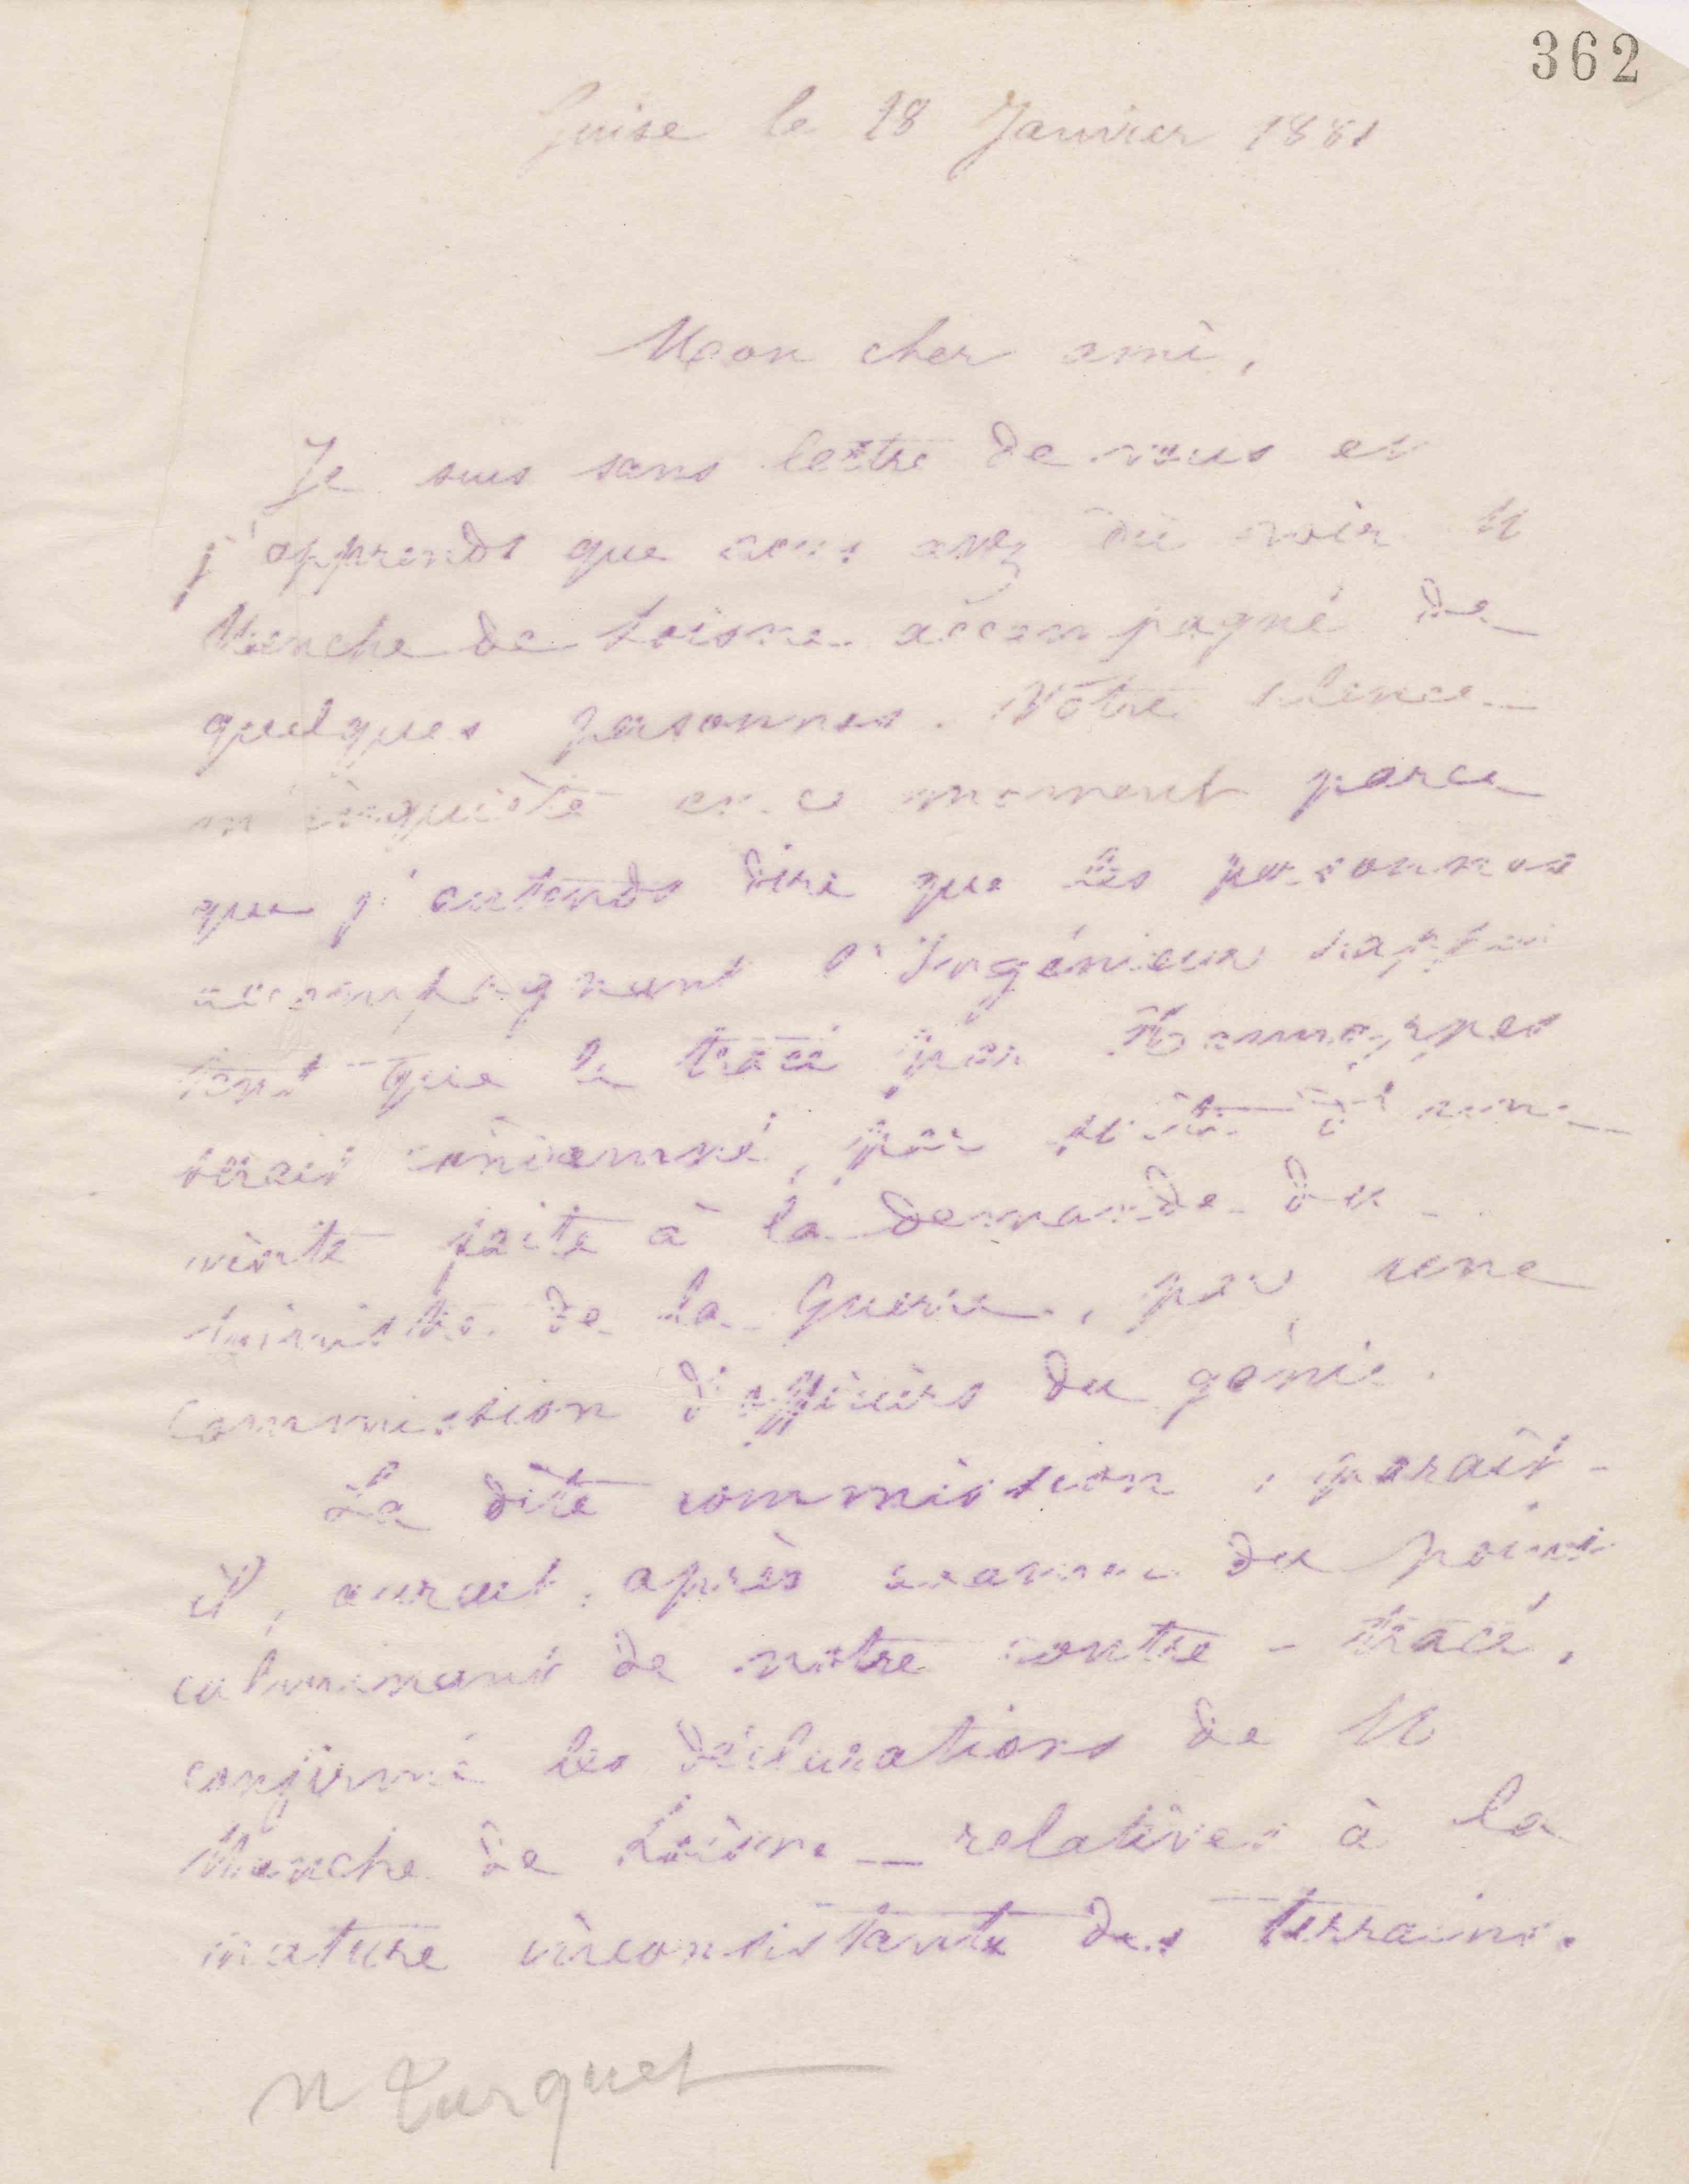 362
Guise le 18 Janvier 1881
Mon cher ami,
Je suis sans lettre de vous et
j'apprends que vous avez dû voir M
Menche de Loisne accompagné de
quelques personnes. Votre silence
m'inquiète en ce moment parce
que j'entends dire que les personnes
accompagnant l'Ingénieur
que le tracé par Hannapes
serait condamné, par suite d'
visite faite à la demande du
Ministre de la Guerre, par une
commission d'officiers du génie.
La dite commission, paraît-
il, aurait, après examen du point
culminant de notre contre-tracé,
confirmé les déclarations de M
Menche de Loisne relatives à la
nature inconsistante des terrains.
M Turquet